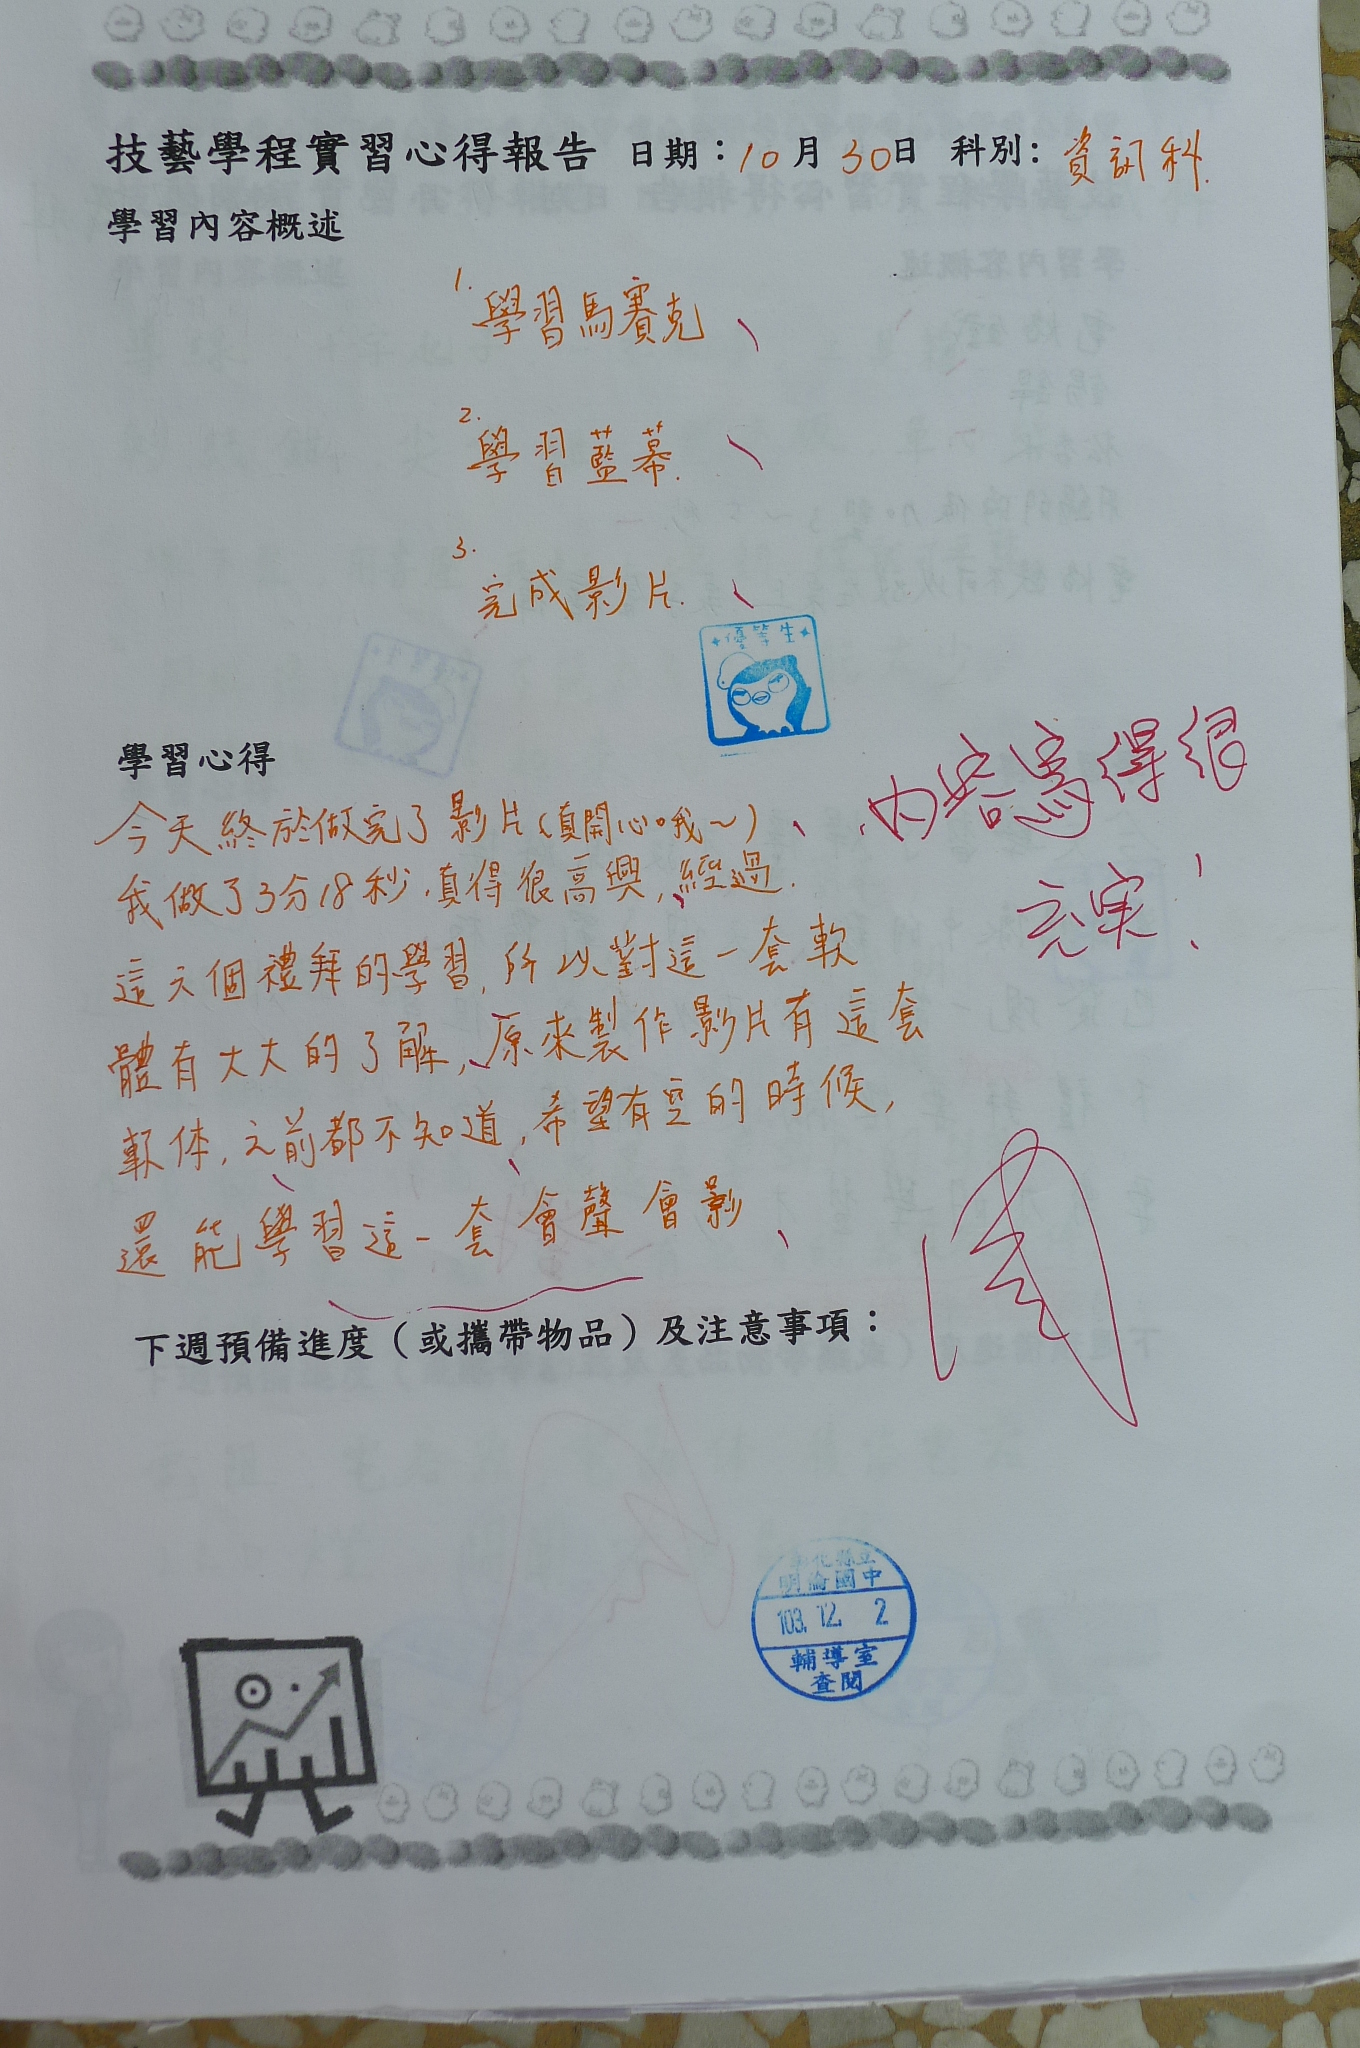 技藝學程實習心得報告 日期：10月30日 科別：資訊科.
學習內容概述
1. 學習馬賽克
2. 學習藍幕.
3. 完成影片.
優等生
學習心得
今天終於做完了影片(真開心哦~)
內容寫得很
充实！
我做了3分18秒,真得很高興,經過.
這六個禮拜的學習,所以對這一套軟
體有大大的了解,原來製作影片有這套
軟体,之前都不知道,希望有空的時候,
還能學習這一套會聲會影
下週預備進度（或攜帶物品）及注意事項：
彰化縣立
明倫國中
103.12. 2
輔導室
查閱